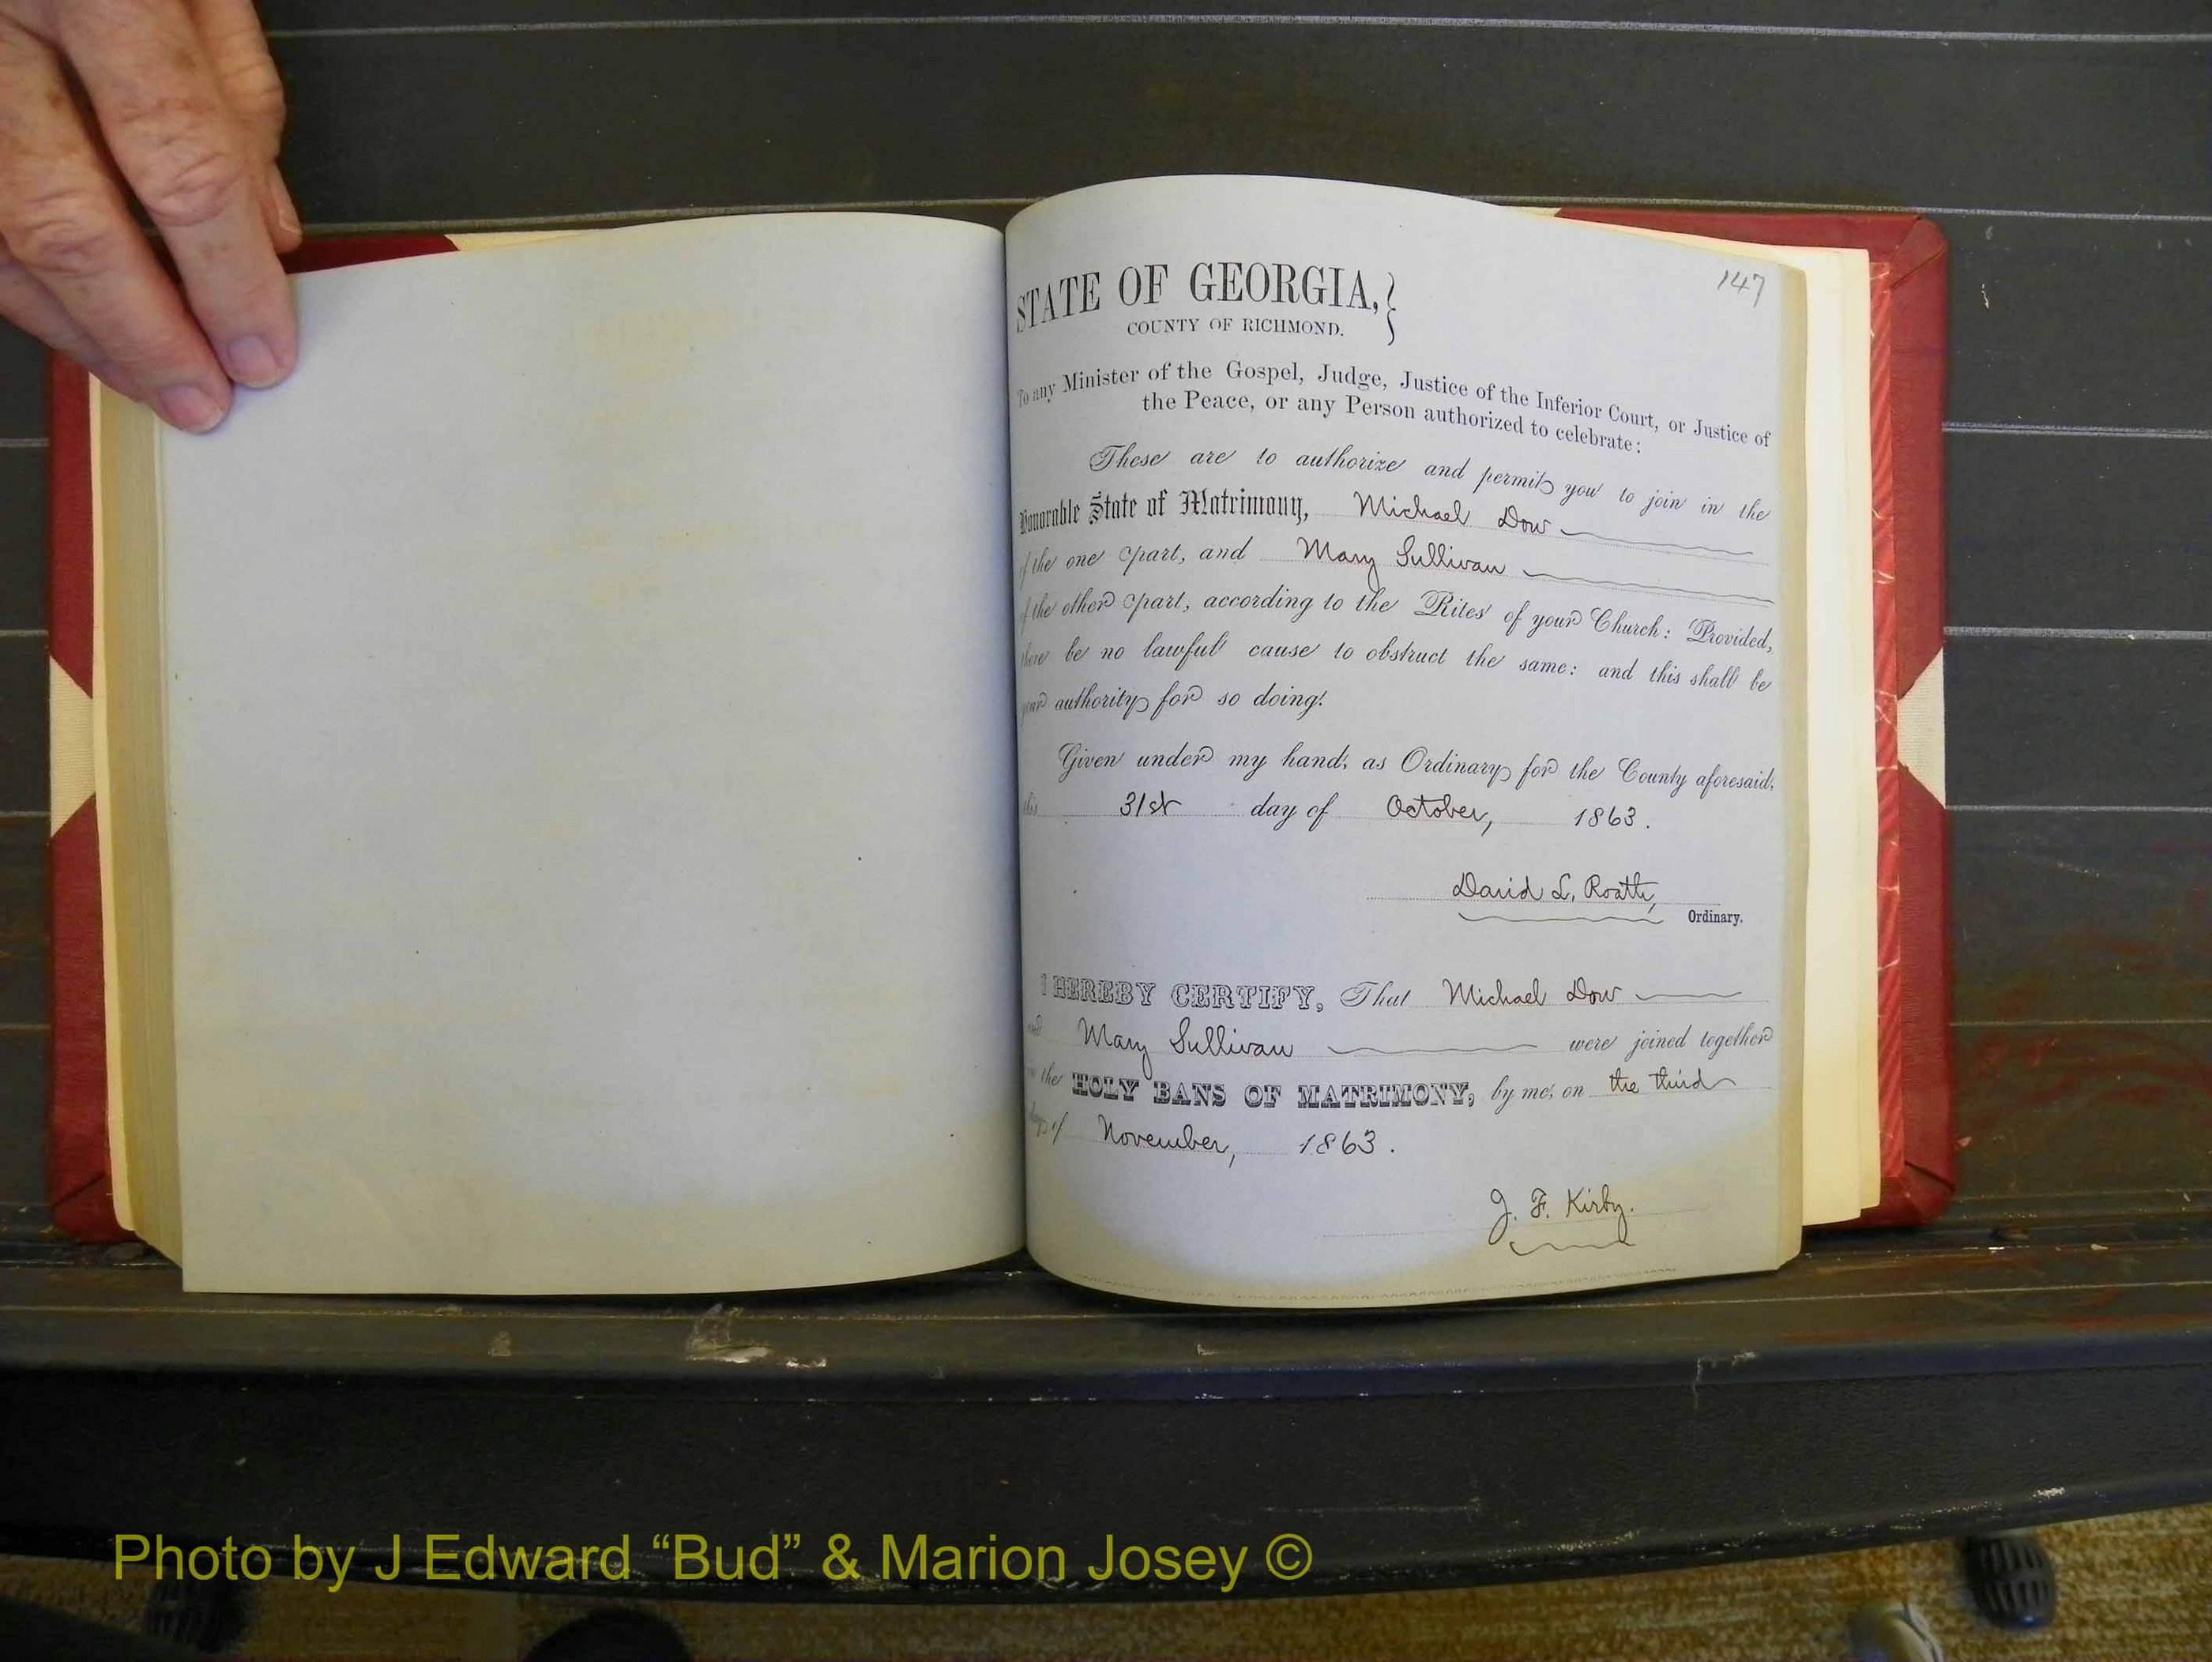 147
STATE OF GEORGIA, }
COUNTY OF RICHMOND.
To any Minister of the Gospel, Judge, Justice of the Inferior Court, or Justice of
the Peace, or any Person authorized to celebrate:
These are to authorize and permit you to join in the
Honorable State of Matrimony, Michael Dow
of the one part, and Mary Sullivan
of the other part, according to the Rites of your Church: Provided,
there be no lawful cause to obstruct the same: and this shall be
your authority for so doing.
Given under my hand, as Ordinary for the County aforesaid,
this 31st day of October, 1863.
David L. Roath,
Ordinary.
I HEREBY CERTIFY, That Michael Dow
and Mary Sullivan were joined together
in the HOLY BANS OF MATRIMONY, by me, on the third
day of November, 1863.
J. F. Kirby.
Photo by J Edward “Bud” & Marion Josey ©